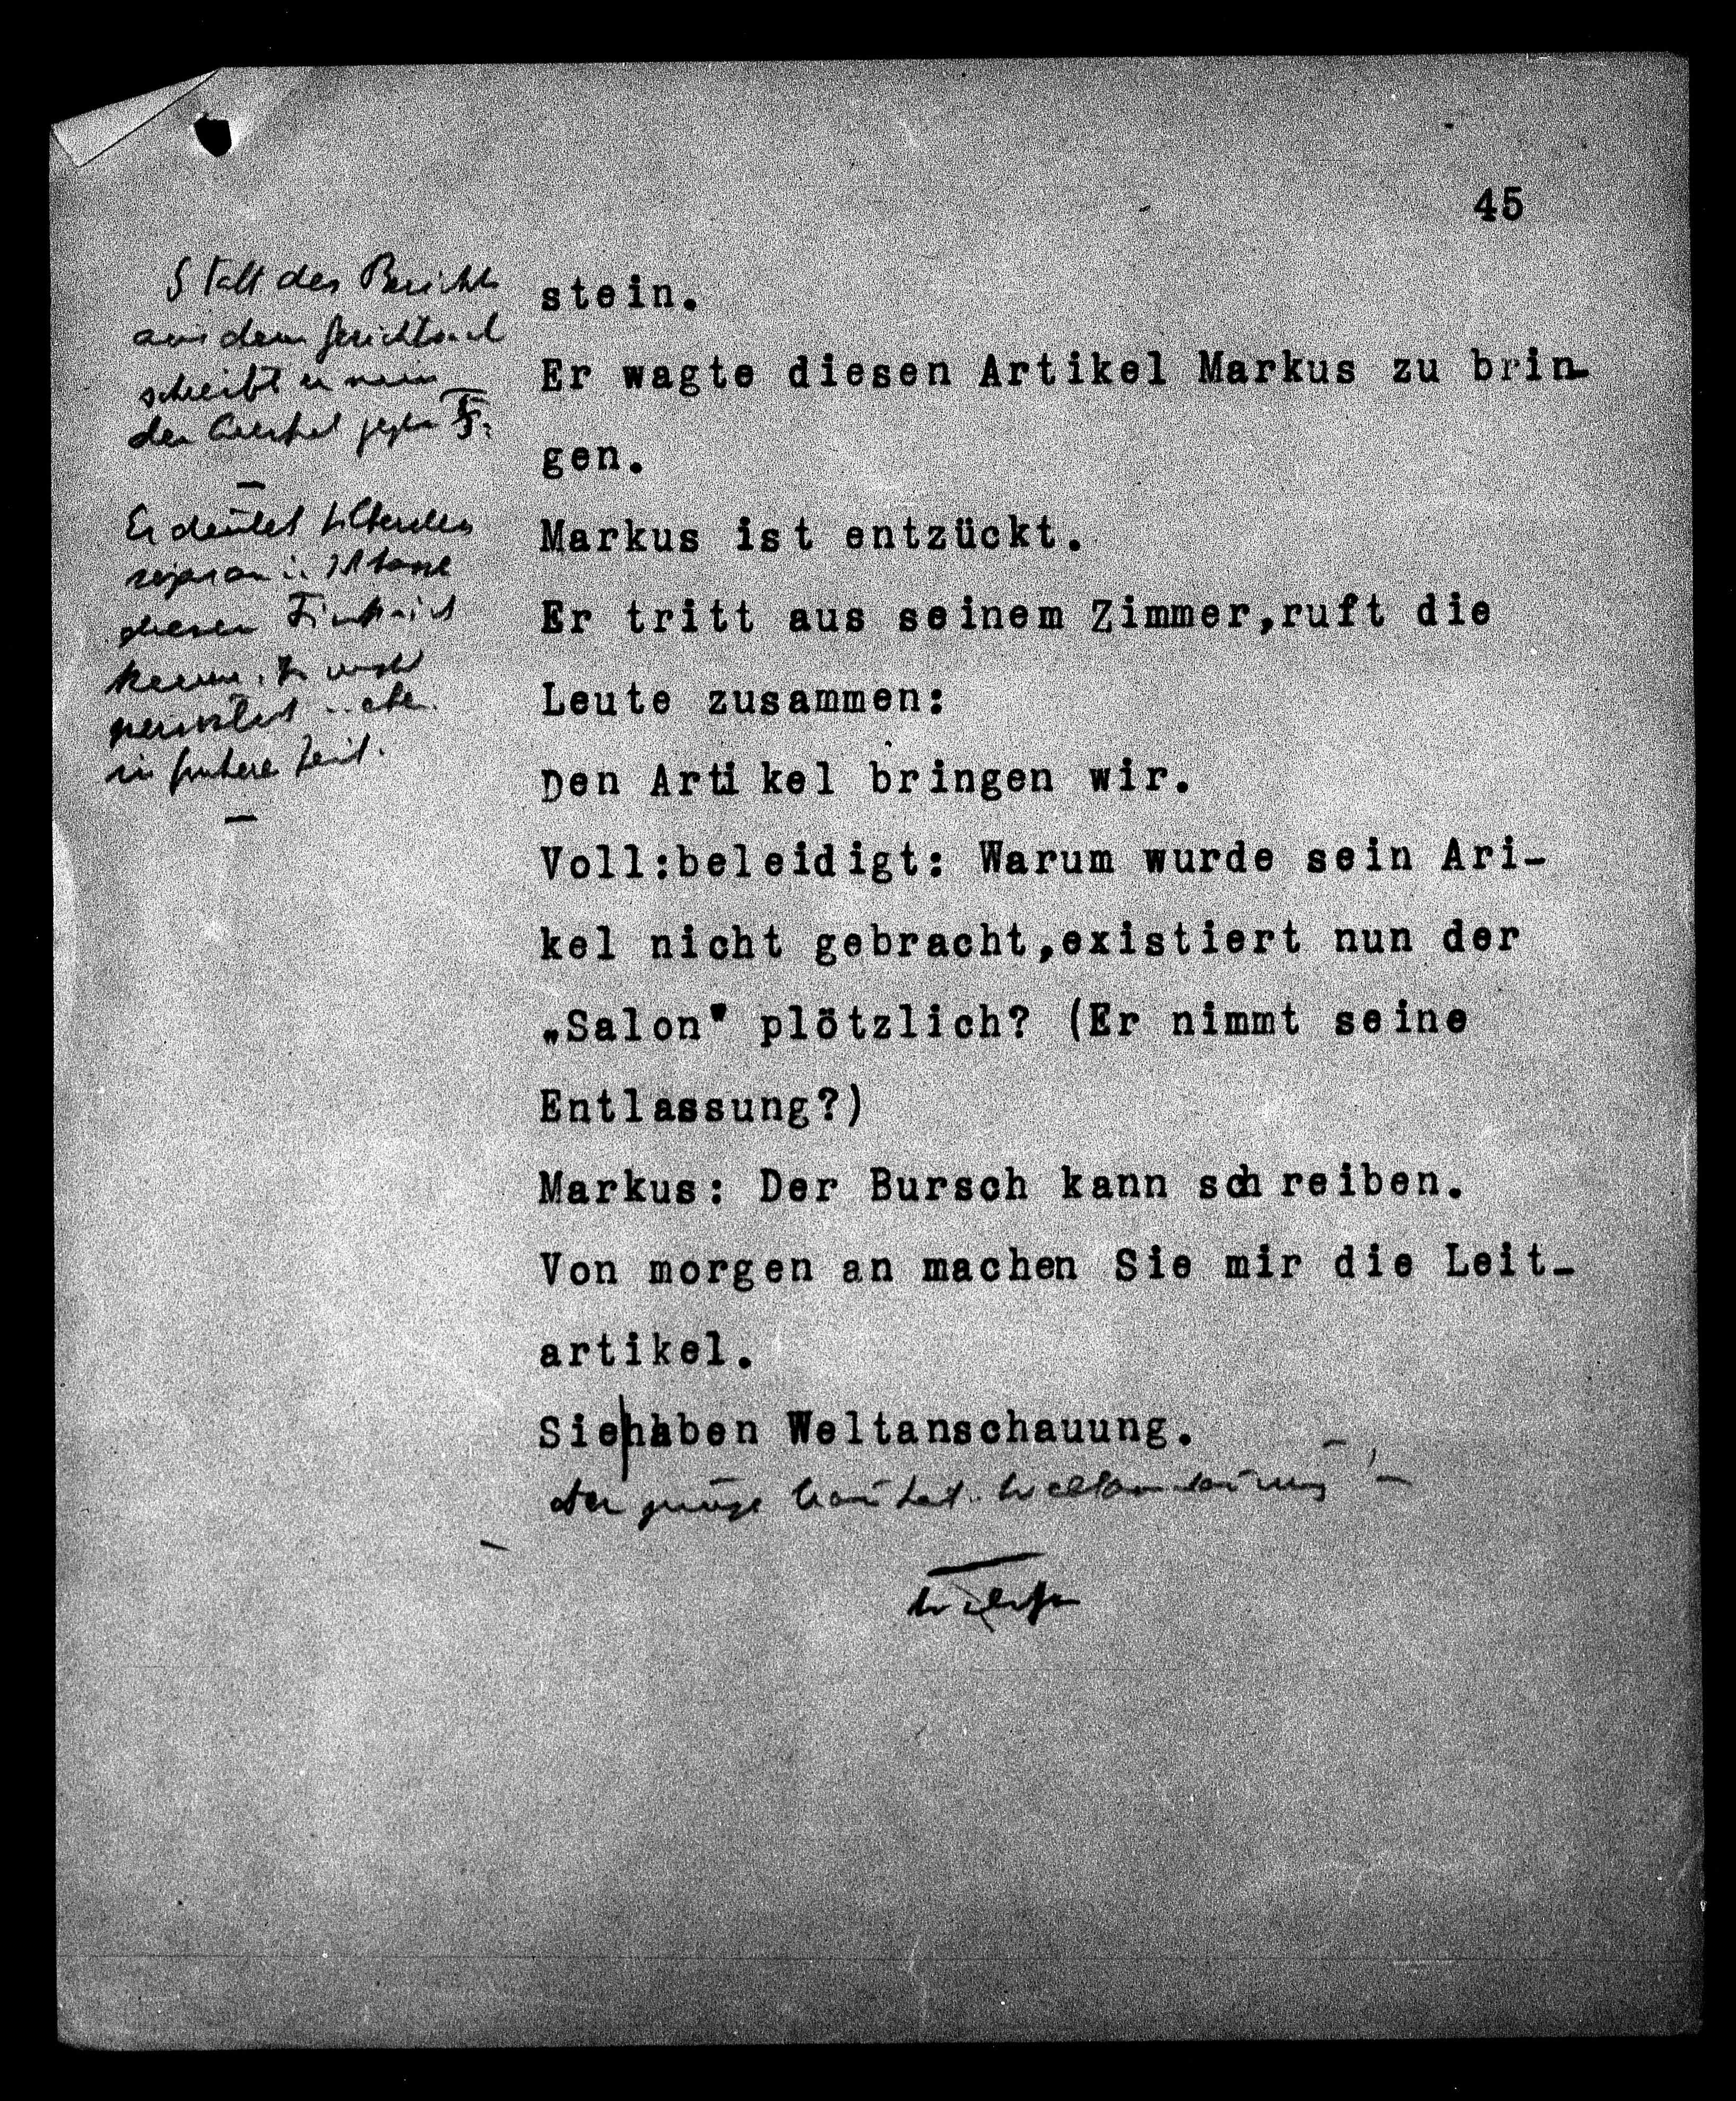 45
Statt des Berichts
aus dem Gerichtssaal
schreibt er nun
den Artikel gegen F.
Er deutet
an
diesen
in frühere Zeit.
stein.
Er wagte diesen Artikel Markus zu brin-
gen.
Markus ist entzückt.
Er tritt aus seinem Zimmer,ruft die
Leute zusammen:
Den Artikel bringen wir.
Voll:beleidigt: Warum wurde sein Ari-
kel nicht gebracht,existiert nun der
„Salon" plötzlich? (Er nimmt seine
Entlassung?)
Markus: Der Bursch kann schreiben.
Von morgen an machen Sie mir die Leit-
artikel.
Sie|haben Weltanschauung.
der junge hat Weltanschauung! –